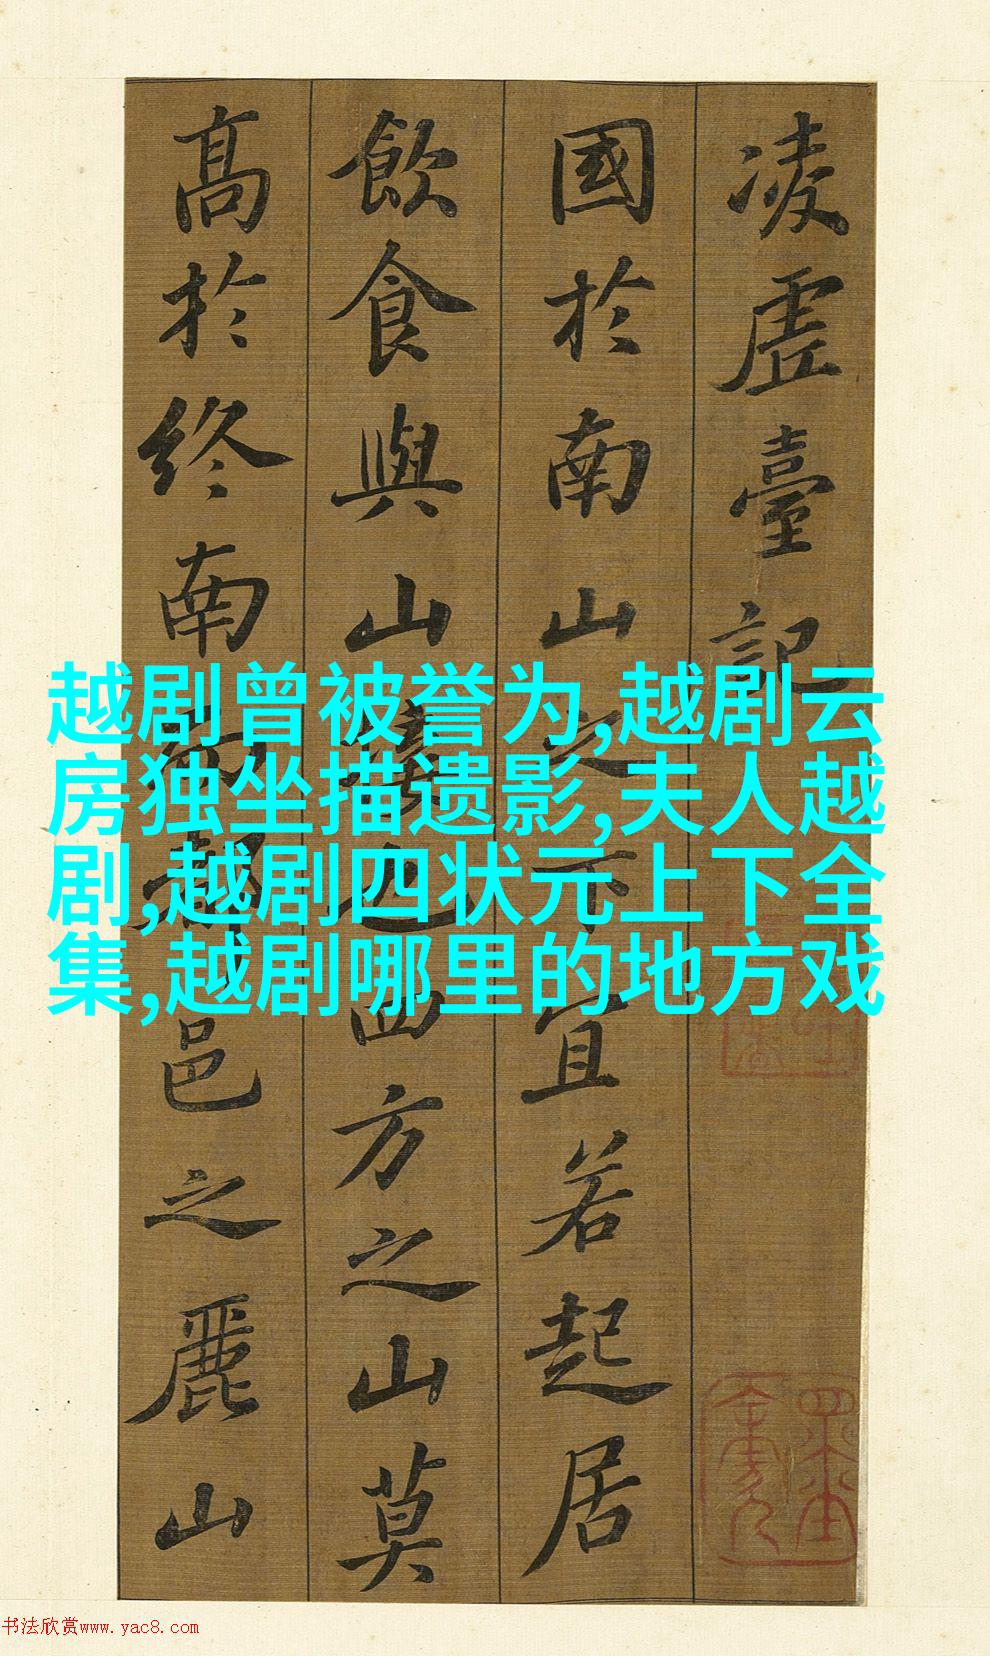 凌虛臺記
國於南山之下宜若起居
飲食與山接也四方之山莫
高於終南而都邑之麗山
越剧曾被誉为,越剧云
房独坐描遗影,夫人越
剧,越剧四状元上下全
集,越剧哪里的地方戏
书法欣赏www.yac8.com